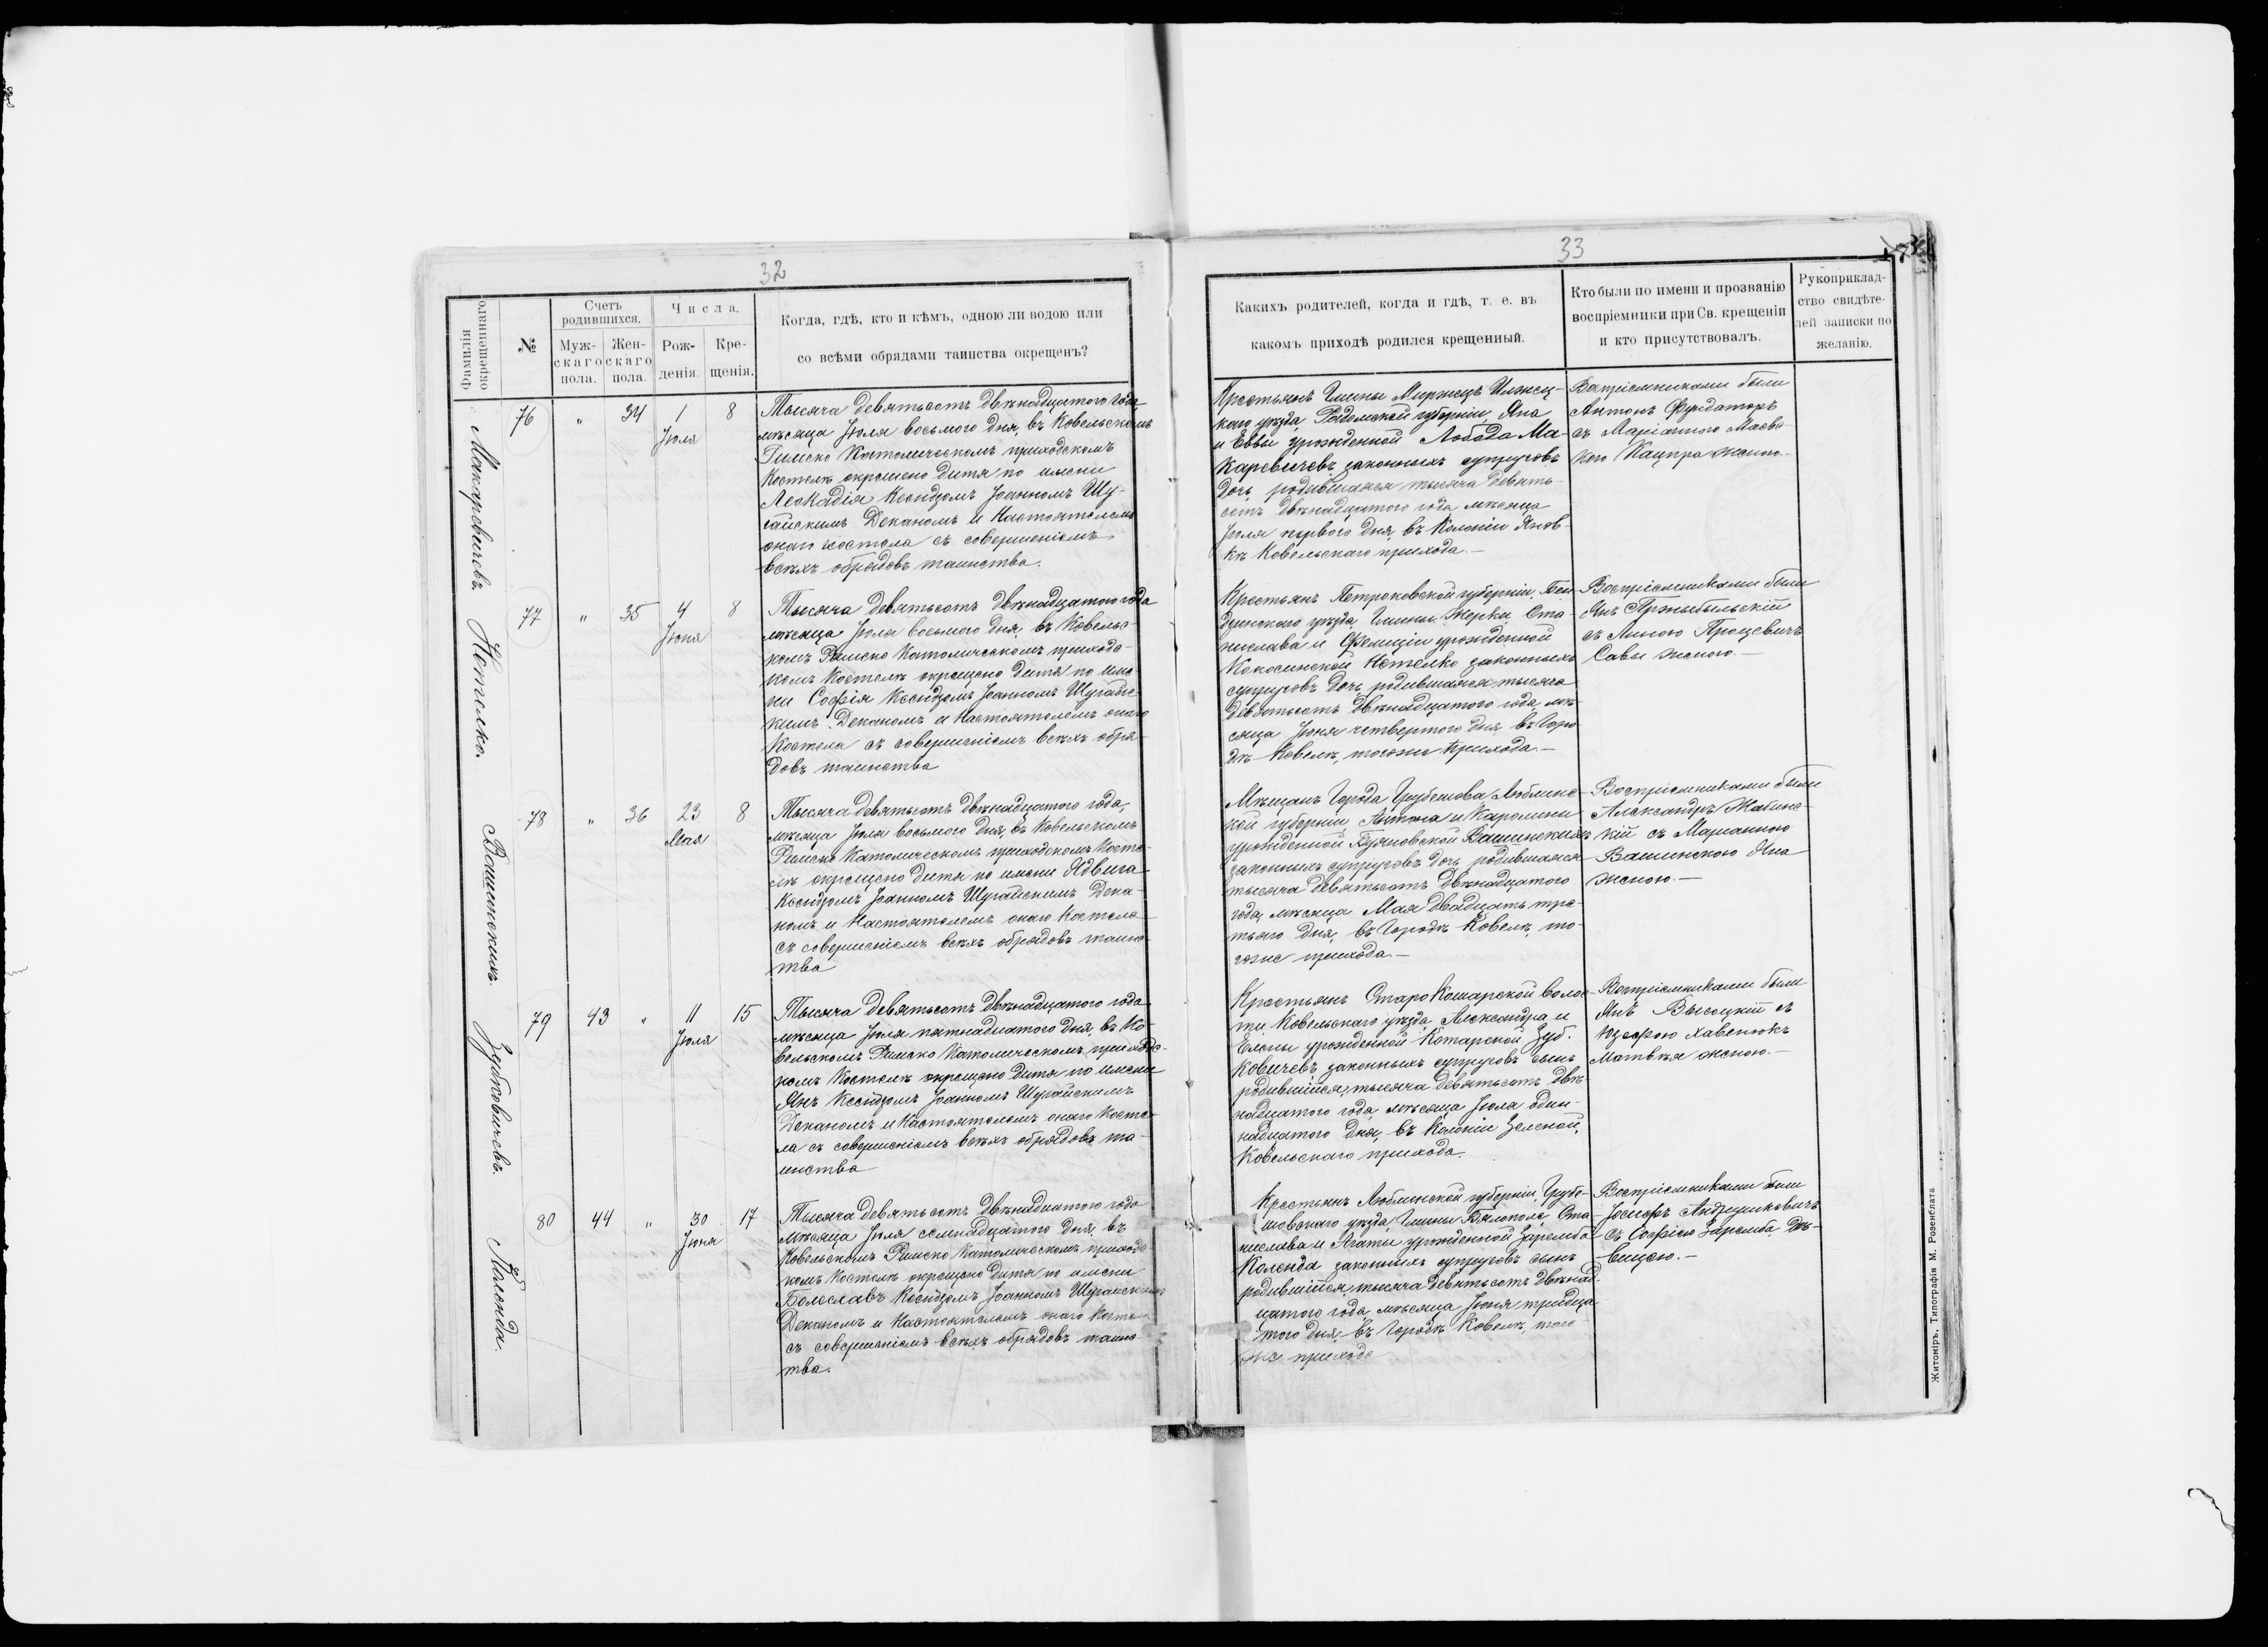 32
Фамилія окрещеннаго
№
Счетъ родившихся.
Муж-
скаго
пола.
Жен-
скаго
пола.
Числа.
Рож-
денія.
Кре-
щенія.
Когда, гдѣ, кто и кѣмъ, одною ли водою или
со всѣми обрядами таинства окрещенъ?
Макаревичевъ.
76 " 34 1 Іюля 8
Тысяча девятьсотъ двѣнадцатого года,
мѣсяца Іюля восьмого дня, въ Ковельскомъ
Римско Католическомъ приходскомъ
Костелѣ окрещено дитя по имени
Леокадія Ксендзомъ Іоанномъ Шу-
гайскимъ Деканомъ и Настоятелемъ
онаго костела съ совершеніемъ
всѣхъ обрядовъ таинства.
Нотелко.
77 " 35 4 Іюня 8
Тысяча девятьсотъ двѣнадцатого года
мѣсяца Іюля восьмого дня, въ Ковельс-
комъ Римско Католическомъ приходс-
комъ Костелѣ окрещено дитя по име-
ни Софія Ксендзомъ Іоанномъ Шугайс-
кимъ Деканомъ и Настоятелемъ онаго
Костела съ совершеніемъ всѣхъ обря-
довъ таинства
Вашинскихъ.
78 " 36 23 Мая 8
Тысяча девятьсотъ двѣнадцатого года,
мѣсяца Іюля восьмого дня, въ Ковельскомъ
Римско Католическомъ приходскомъ Косте-
лѣ окрещено дитя по имени Ядвига
Ксендзомъ Іоанномъ Шугайскимъ Дека-
номъ и Настоятелемъ онаго Костела
съ совершеніемъ всѣхъ обрядовъ таинс-
тва
Зубковичевъ.
79 43 " 11 Іюля 15
Тысяча девятьсотъ двѣнадцатого года
мѣсяца Іюля пятнадцатого дня, въ Ко-
вельскомъ Римско Католическомъ приходс-
комъ Костелѣ окрещено дитя по имени
Янъ Ксендзомъ Іоанномъ Шугайскимъ
Деканомъ и Настоятелемъ онаго Косте-
ла съ совершеніемъ всѣхъ обрядовъ та-
инства
Коленда.
80 44 " 30 Іюня 17
Тысяча девятьсотъ двѣнадцатого года
мѣсяца Іюля семнадцатого дня, въ
Ковельскомъ Римско Католическомъ приходс-
комъ Костелѣ окрещено дитя по имени
Болеславъ Ксендзомъ Іоанномъ Шугайскимъ
Деканомъ и Настоятелемъ онаго Костела
съ совершеніемъ всѣхъ обрядовъ таинс-
тва.
33
Какихъ родителей, когда и гдѣ, т. е. въ
какомъ приходѣ родился крещенный.
Кто были по имени и прозванію
воспріемники при Св. крещеніи
и кто присутствовалъ.
Рукоприклад-
ство свидѣте-
лей записки по
желанію.
Крестьянъ Гмины Миржецъ Илжец-
каго уѣзда, Радомской губерніи Яна
и Еввы урожденной Лобода Ма-
каревичевъ законныхъ супруговъ
дочь, родившаяся тысяча девять-
сотъ двѣнадцатого года мѣсяца
Іюля первого дня, въ Колоніи Янов-
кѣ Ковельскаго прихода.—
Воспріемниками были
Антонъ Фундаторъ
съ Маріанною
Кацпра женою.—
Крестьянъ Петроковской губерніи, Бен-
динскаго уѣзда, Гмины Жерки Ста-
нислава и Фелиціи урожденной
Кокосинской Нотелко законныхъ
супруговъ дочь, родившаяся тысяча
девятьсотъ двѣнадцатого года, мѣ-
сяца Іюня четвертого дня въ Горо-
дѣ Ковелѣ, тогоже прихода.—
Воспріемниками были
Янъ Пржыбыльскій
съ Анною Процевичъ
Савы женою.—
Мѣщанъ Города Грубешова Люблинс-
кой губерніи, Антона и Каролины
урожденной Вашинскихъ
законныхъ супруговъ дочь, родившаяся
тысяча девятьсотъ двѣнадцатого
года, мѣсяца Мая двадцать тре-
тьяго дня, въ Городѣ Ковелѣ, то-
гоже прихода.—
Воспріемниками были
Александръ Жабинс-
кій съ Марианною
Вашинскою Яна
женою.—
Крестьянъ СтароКошарской волос-
ти, Ковельскаго уѣзда Александра и
Елены урожденной Котарской Зуб-
ковичевъ законныхъ супруговъ сынъ
родившійся, тысяча девятьсотъ двѣ-
надцатого года мѣсяца Іюля один-
надцатого дня, въ Колоніи Зеленой,
Ковельскаго прихода.
Воспріемниками были
Янъ Высоцкій съ
Юзефою Хавенюкъ
Матвѣя женою.—
Крестьянъ Люблинской губерніи, Грубе-
шовскаго уѣзда, Гмины Бялополе Ста-
нислава и Агаты урожденной Заремба
Коленда законныхъ супруговъ сынъ
родившійся, тысяча девятьсотъ двѣнад-
цатого года мѣсяца Іюня тридца-
того дня, въ Городѣ Ковелѣ, того-
же прихода
Воспріемниками были
Іосифъ Андрушковичъ
съ Софіею Заремба, дѣ-
вицею.—
Житоміръ, Типографія М. Розенблата